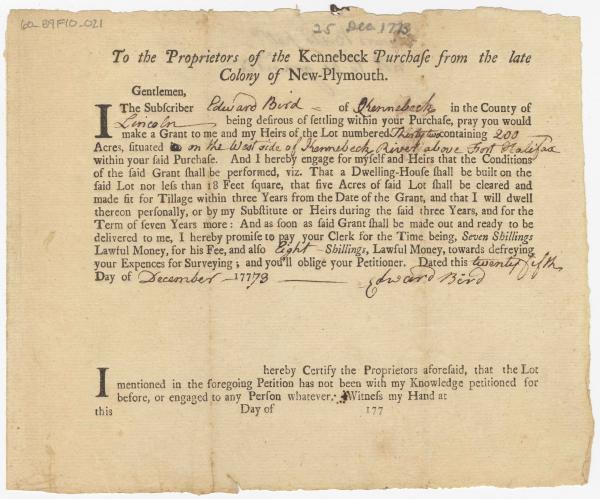 60-B9F10-021
25 Dec 1773
To the Proprietors of the Kennebeck Purchaſe from the late
Colony of New-Plymouth.
Gentlemen,
The Subſcriber Edward Bird of Kennebeck in the County of
Lincoln being deſirous of ſettling within your Purchaſe, pray you would
make a Grant to me and my Heirs of the Lot numbered Thirty two containing 200
Acres, ſituated on the West side of Kennebeck River above Fort Halifax
within your ſaid Purchaſe. And I hereby engage for myſelf and Heirs that the Conditions
of the ſaid Grant ſhall be performed, viz. That a Dwelling-Houſe ſhall be built on the
ſaid Lot not leſs than 18 Feet ſquare, that five Acres of ſaid Lot ſhall be cleared and
made fit for Tillage within three Years from the Date of the Grant, and that I will dwell
thereon perſonally, or by my Subſtitute or Heirs during the ſaid three Years, and for the
Term of ſeven Years more: And as ſoon as ſaid Grant ſhall be made out and ready to
be delivered to me, I hereby promiſe to pay your Clerk for the Time being, Seven Shillings
Lawful Money, for his Fee, and alſo Eight Shillings, Lawful Money, towards defreying
your Expences for Surveying; and you'll oblige your Petitioner. Dated this twenty fifth
Day of December 17773 Edward Bird
I hereby Certify the Proprietors aforeſaid, that the Lot
mentioned in the foregoing Petition has not been with my Knowledge petitioned for
before, or engaged to any Perſon whatever. Witneſs my Hand at
this Day of 177